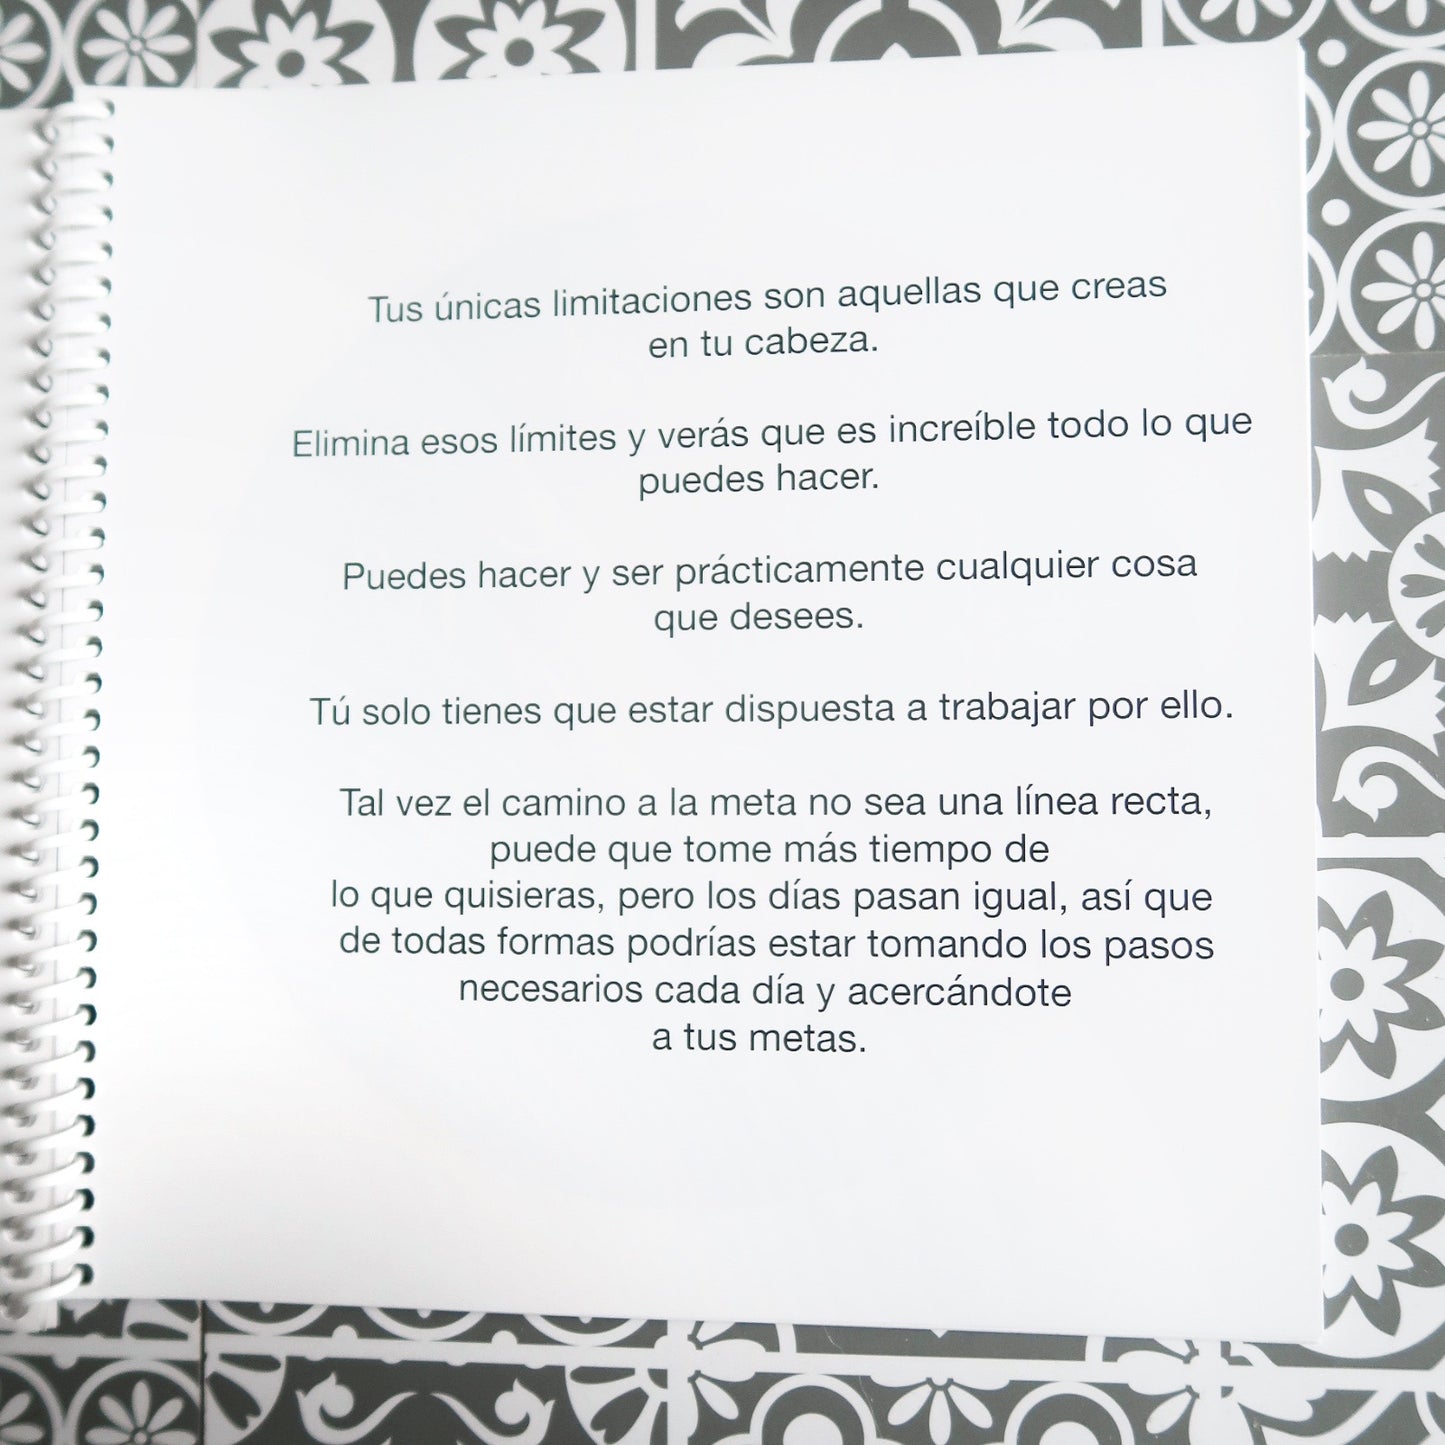 Tus únicas limitaciones son aquellas que creas
en tu cabeza.
Elimina esos límites y verás que es increíble todo lo que
puedes hacer.
Puedes hacer y ser prácticamente cualquier cosa
que desees.
Tú solo tienes que estar dispuesta a trabajar por ello.
Tal vez el camino a la meta no sea una línea recta,
puede que tome más tiempo de
lo que quisieras, pero los días pasan igual, así que
de todas formas podrías estar tomando los pasos
necesarios cada día y acercándote
a tus metas.